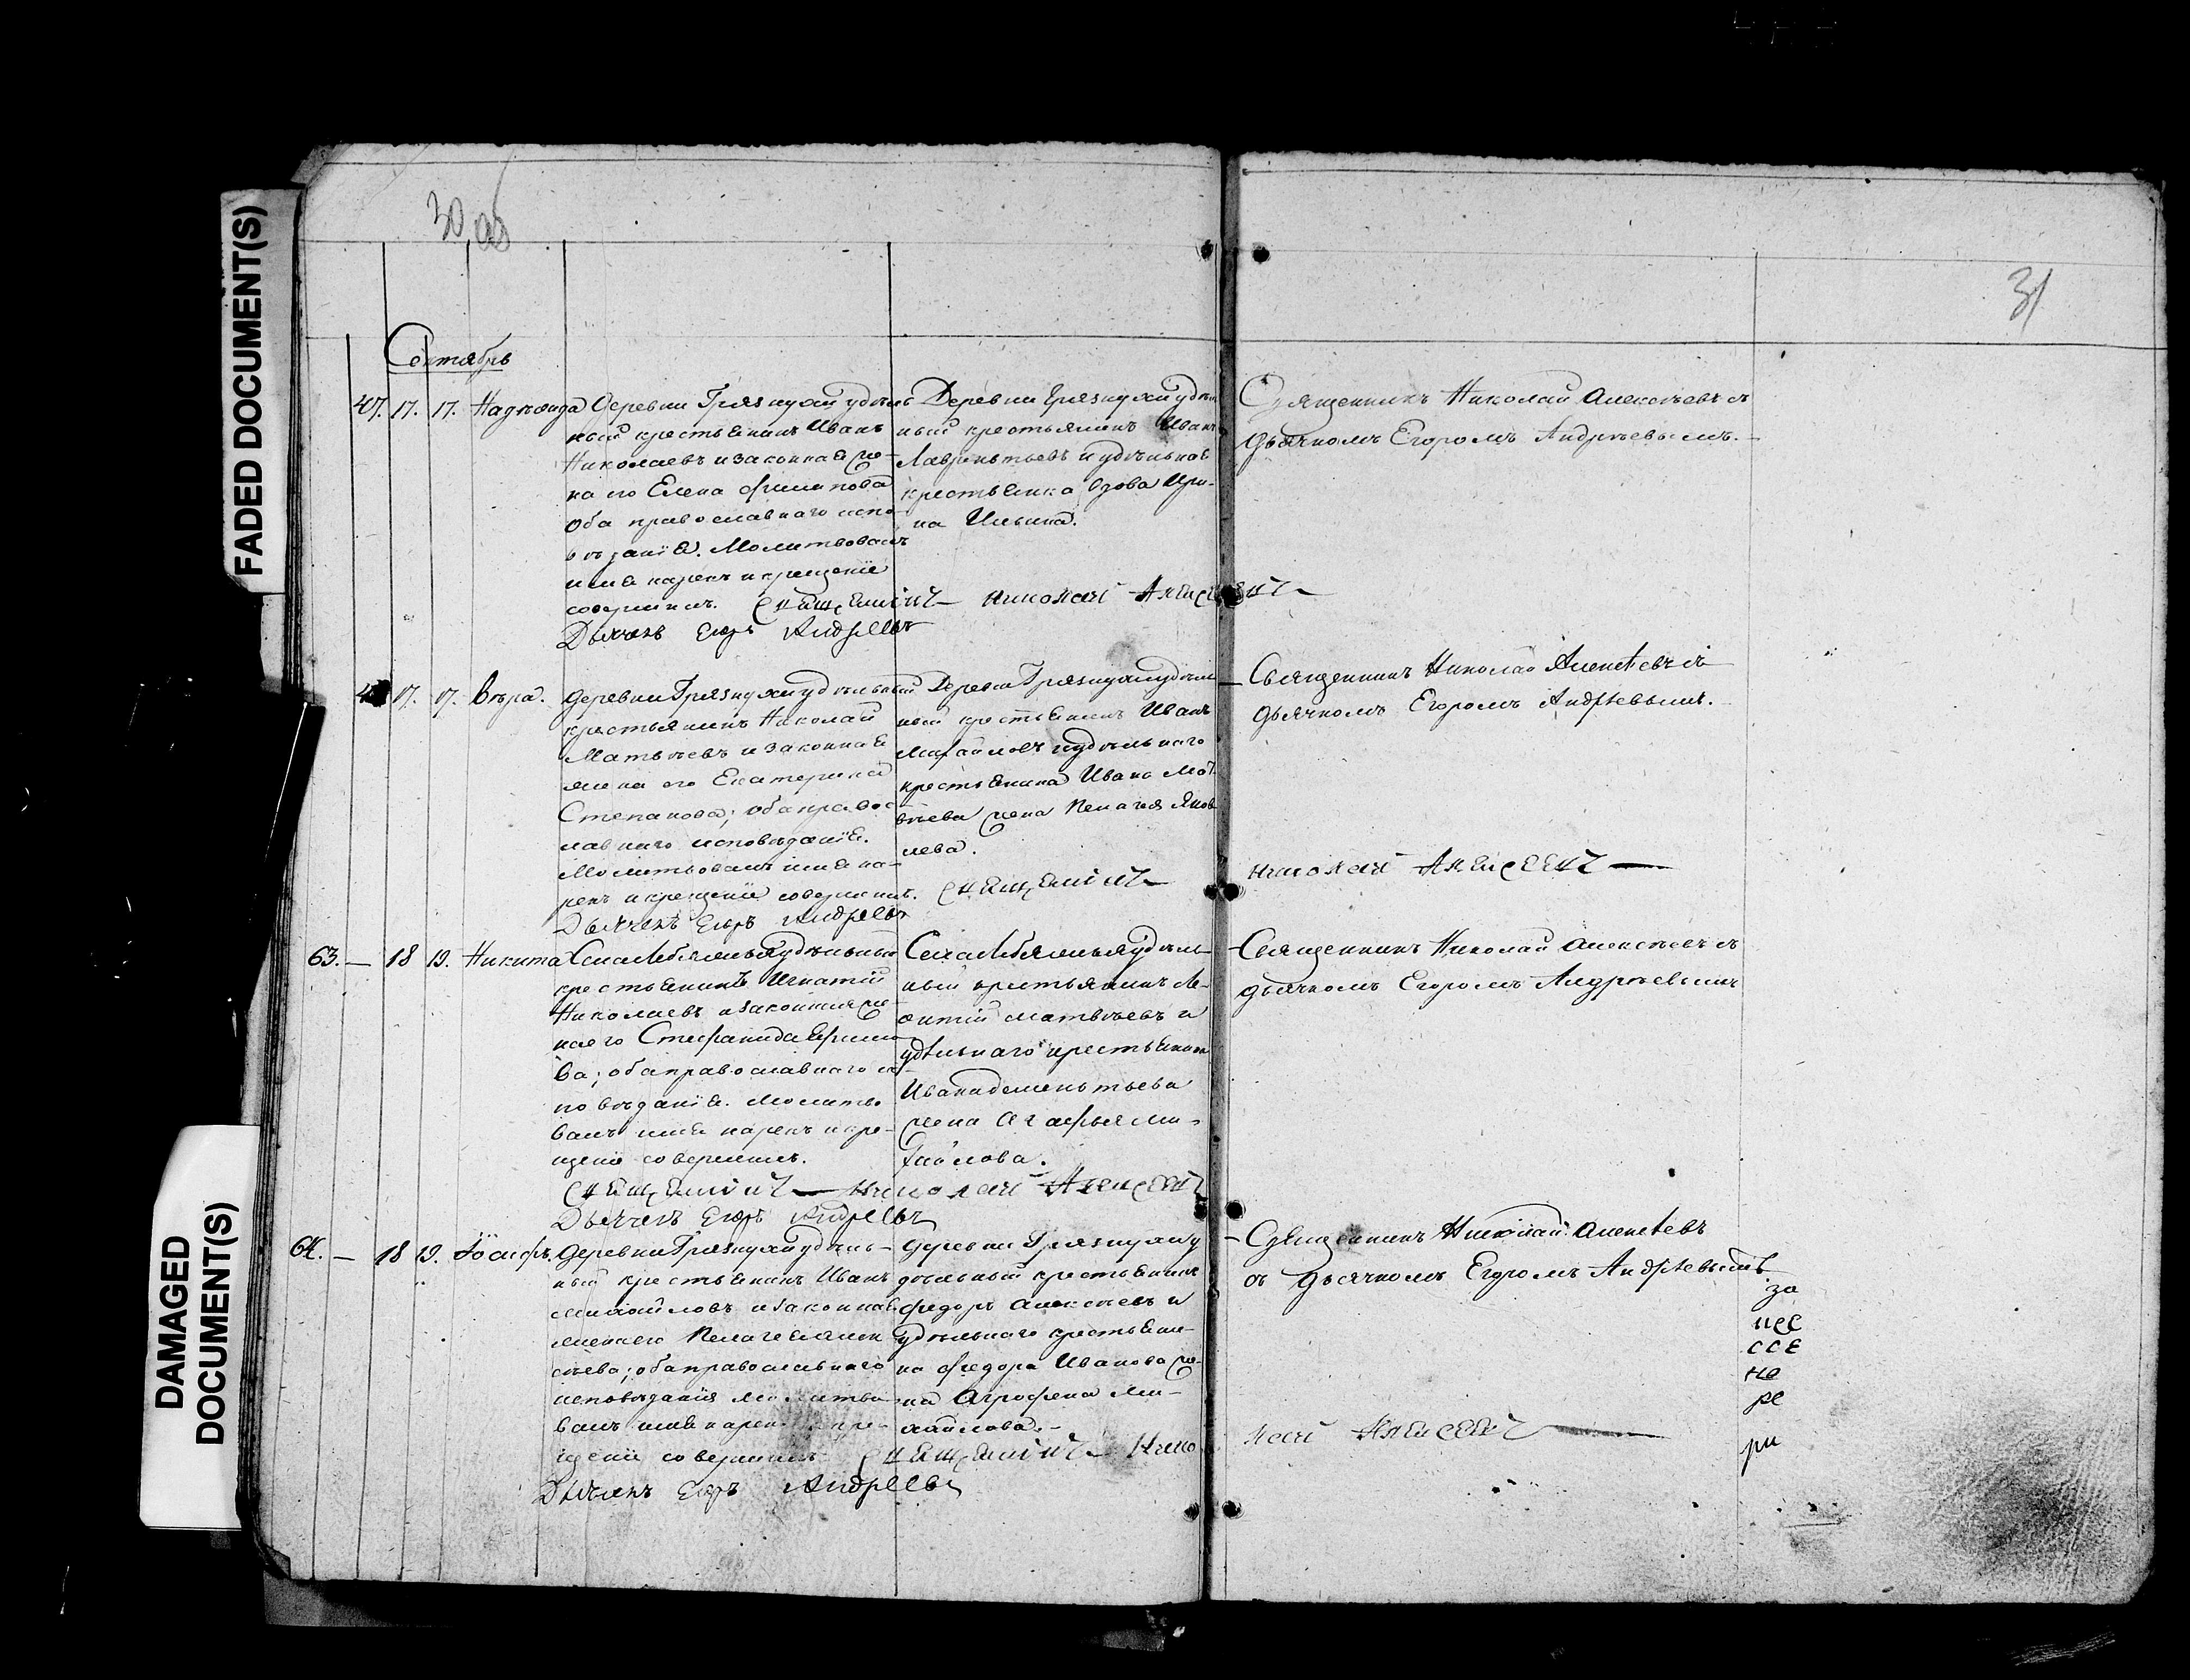 FADED DOCUMENT(S)
DAMAGED
DOCUMENT(S)
30 об
31
Сентябрь
47. 17. 17. Надежда
Деревни Грязнухи удѣль
ный крестьянинъ Иванъ
Николаевъ и законная же-
на его Елена Филипова
оба православнаго испо-
вѣданія. Молитвовалъ
имя нарекъ и крещеніе
совершилъ. Священникъ Николай Алексеевъ
Дьячекъ Егоръ Андреевъ
Деревни Грязнухи удѣль
ный крестьянинъ Иванъ
Лаврентьевъ и удѣльная
крестьянка вдова Ири-
на Ильина.
Священникъ Николай Алексѣевъ съ
дьячкомъ Егоромъ Андрѣевымъ.
17. 17. Вѣра.
деревни Грязнухи удѣльный
крестьянинъ Николай
Матвѣевъ и законная
жена его Екатерина
Степанова; оба правос-
лавнаго исповѣданія.
Молитвовалъ имя на-
рекъ и крещеніе совершилъ. Священникъ
Дьячекъ Егоръ Андреевъ
Деревни Грязнухи удѣль
ный крестьянинъ Иванъ
Михайловъ и удѣльнаго
крестьянина Ивана Мат
вѣева жена Пелагея Яков
лева.
Священникъ Николай Алексѣевъ съ
дьячкомъ Егоромъ Андрѣевымъ.
Николай Алексеевъ
63. — 18 19. Никита
Села удѣльный
крестьянинъ Игнатій
Николаевъ и законная же-
на его Стефанида
ва; оба православнаго ис
повѣданія. Молитво
валъ имя нарекъ и кре-
щеніе совершилъ.
Священникъ Николай Алексеевъ
Дьячекъ Егоръ Андреевъ
Села удѣль-
ный крестьянинъ Ле-
онтій Матвѣевъ и
удѣльнаго крестьянина
Ивана Дементьева
жена Агафья Ми-
хайлова.
Священникъ Николай Алексѣевъ съ
дьячкомъ Егоромъ Андрѣевымъ
64. — 18 19. Іосифъ.
деревни Грязнухи удѣль-
ный крестьянинъ Иванъ
Михайловъ и законная
жена его Пелагея Алек
сѣева; оба православнаго
исповѣданія молитво
валъ имя нарекъ и кре-
щеніе совершилъ Священникъ Нико
Дьячекъ Егоръ Андреевъ
деревни Грязнухи у
дѣльный крестьянинъ
Федоръ Алексѣевъ и
удѣльнаго крестьяни-
на Федора Иванова же-
на Агрофена Ми-
хайлова.-
Священникъ Николай Алексѣевъ
съ дьячкомъ Егоромъ Андрѣевымъ
лай Алексеевъ
за
не
ре
ри